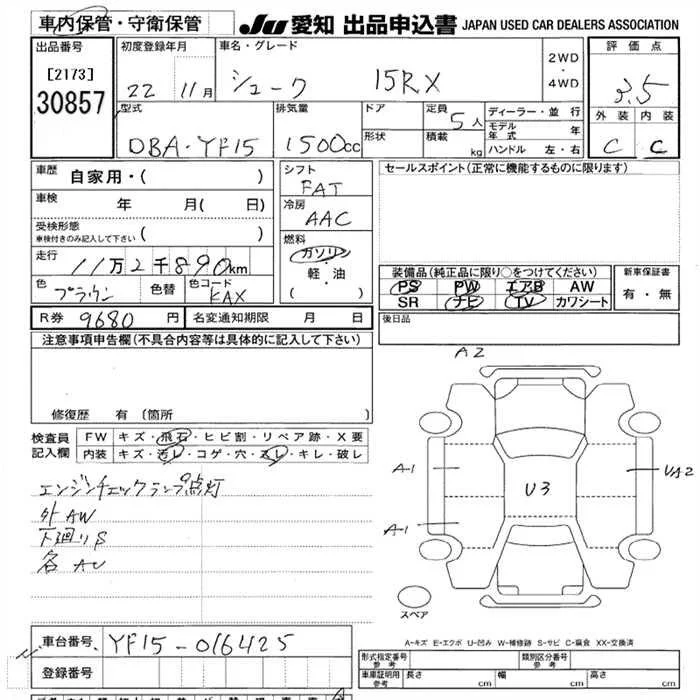 車内保管・守衛保管
JU 愛知 出品申込書 JAPAN USED CAR DEALERS ASSOCIATION
出品番号
[2173]
30857
初度登録年月
22 11月
車名・グレード
ジューク 15RX
2WD
・
4WD
評価点
3.5
外装 内装
C C
型式
DBA-YF15
排気量
1500cc
ドア
形状
定員 5人
積載 kg
ディーラー・並行
モデル年式 年
ハンドル 左・右
車歴 自家用・( )
車検 年 月( 日)
受検形態
車検付きのみ記入して下さい ( )
走行 11万2千890km
色 ブラウン 色替 色コード KAX
シフト
FAT
冷房
AAC
燃料
ガソリン
軽・油
( )
セールスポイント(正常に機能するものに限ります)
装備品(純正品に限り○をつけてください)
PS PW エアB AW
SR ナビ TV カワシート
新車保証書
有・無
R券 9680円 名変通知期限 月 日
後日品
注意事項申告欄(不具合内容等は具体的に記入して下さい)
修復歴 有(箇所
検査員記入欄
FW キズ・飛石・ヒビ割・リペア跡・X要
内装 キズ・汚レ・コゲ・穴・スレ・キレ・破レ
エンジンチェックランプ点灯
外AW
下廻りS
各AU
A2
A-1
A-1
U3
UA2
スペア
A-キズ E-エクボ U-凹み W-補修跡 S-サビ C-腐食 XX-交換済
車台番号 YF15-016425
登録番号
形式指定番号
参考
類別区分番号
参考
車庫証明用
参考
長さ cm 幅 cm 高さ cm